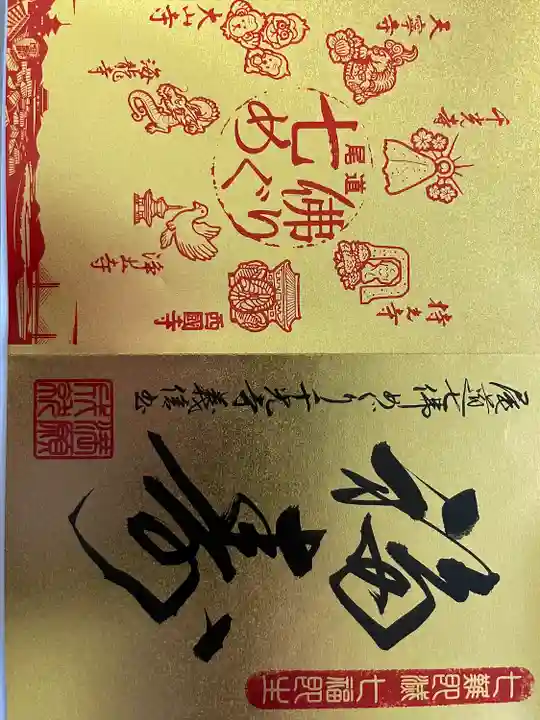 尾道
七佛
めぐり
天寧寺
千光寺
持光寺
大山寺
海龍寺
浄土寺
西國寺
七難即滅 七福即生
福寿
尾道七佛めぐり千光寺
満願成就